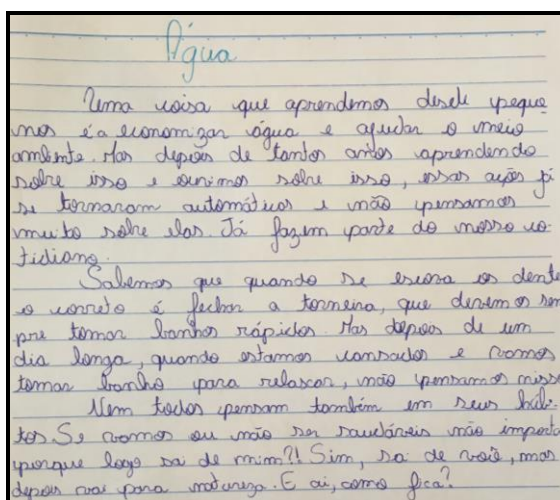 Água
Uma coisa que aprendemos desde peque
nos é a economizar água e ajudar o meio
ambiente. Mas depois de tantos anos aprendendo
sobre isso e ouvimos sobre isso, essas ações já
se tornaram automáticas e não pensamos
muito sobre elas. Já fazem parte do nosso co-
tidiano.
Sabemos que quando se escova os dente
o correto é fechar a torneira, que devemos sem
pre tomar banhos rápidos. Mas depois de um
dia longa, quando estamos cansados e vamos
tomar banho para relaxar, não pensamos nisso
Nem todos pensam também em seus hábi-
tos. Se vamos ou não ser saudáveis não importa
porque logo sai de mim?! Sim, sai de você, mas
depois vai para natureza. E ai, como fica?